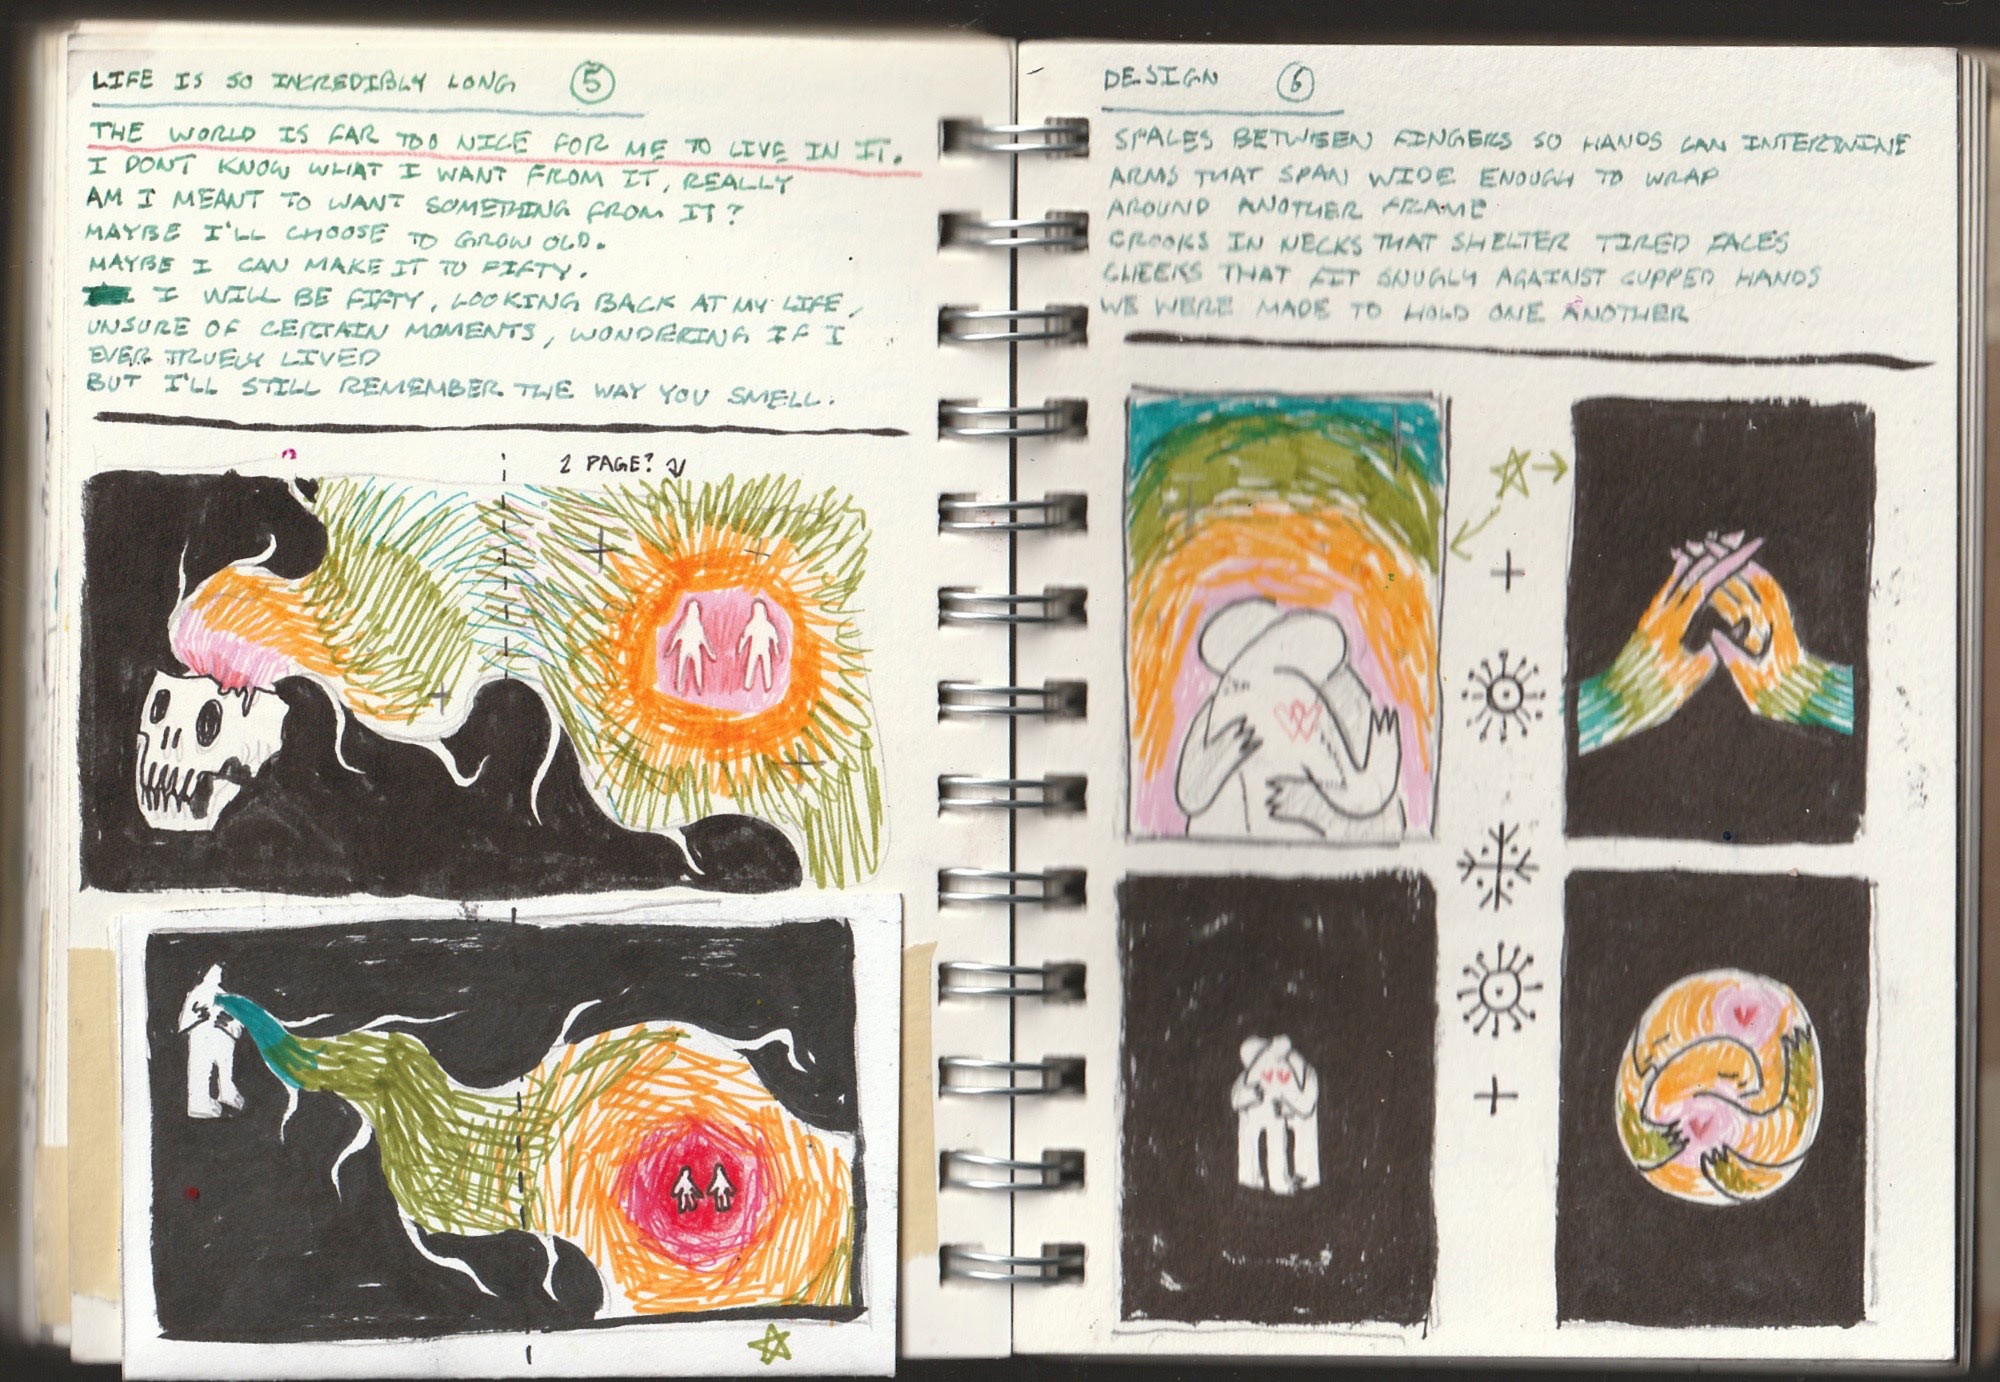 LIFE IS SO INCREDIBLY LONG 5
THE WORLD IS FAR TOO NICE FOR ME TO LIVE IN IT.
I DONT KNOW WHAT I WANT FROM IT, REALLY
AM I MEANT TO WANT SOMETHING FROM IT?
MAYBE I'LL CHOOSE TO GROW OLD.
MAYBE I CAN MAKE IT TO FIFTY.
I WILL BE FIFTY, LOOKING BACK AT MY LIFE,
UNSURE OF CERTAIN MOMENTS, WONDERING IF I
EVER TRUELY LIVED
BUT I'LL STILL REMEMBER THE WAY YOU SMELL.
2 PAGE?
DESIGN 6
SPACES BETWEEN FINGERS SO HANDS CAN INTERTWINE
ARMS THAT SPAN WIDE ENOUGH TO WRAP
AROUND ANOTHER FRAME
CROOKS IN NECKS THAT SHELTER TIRED FACES
CHEEKS THAT FIT SNUGLY AGAINST CUPPED HANDS
WE WERE MADE TO HOLD ONE ANOTHER